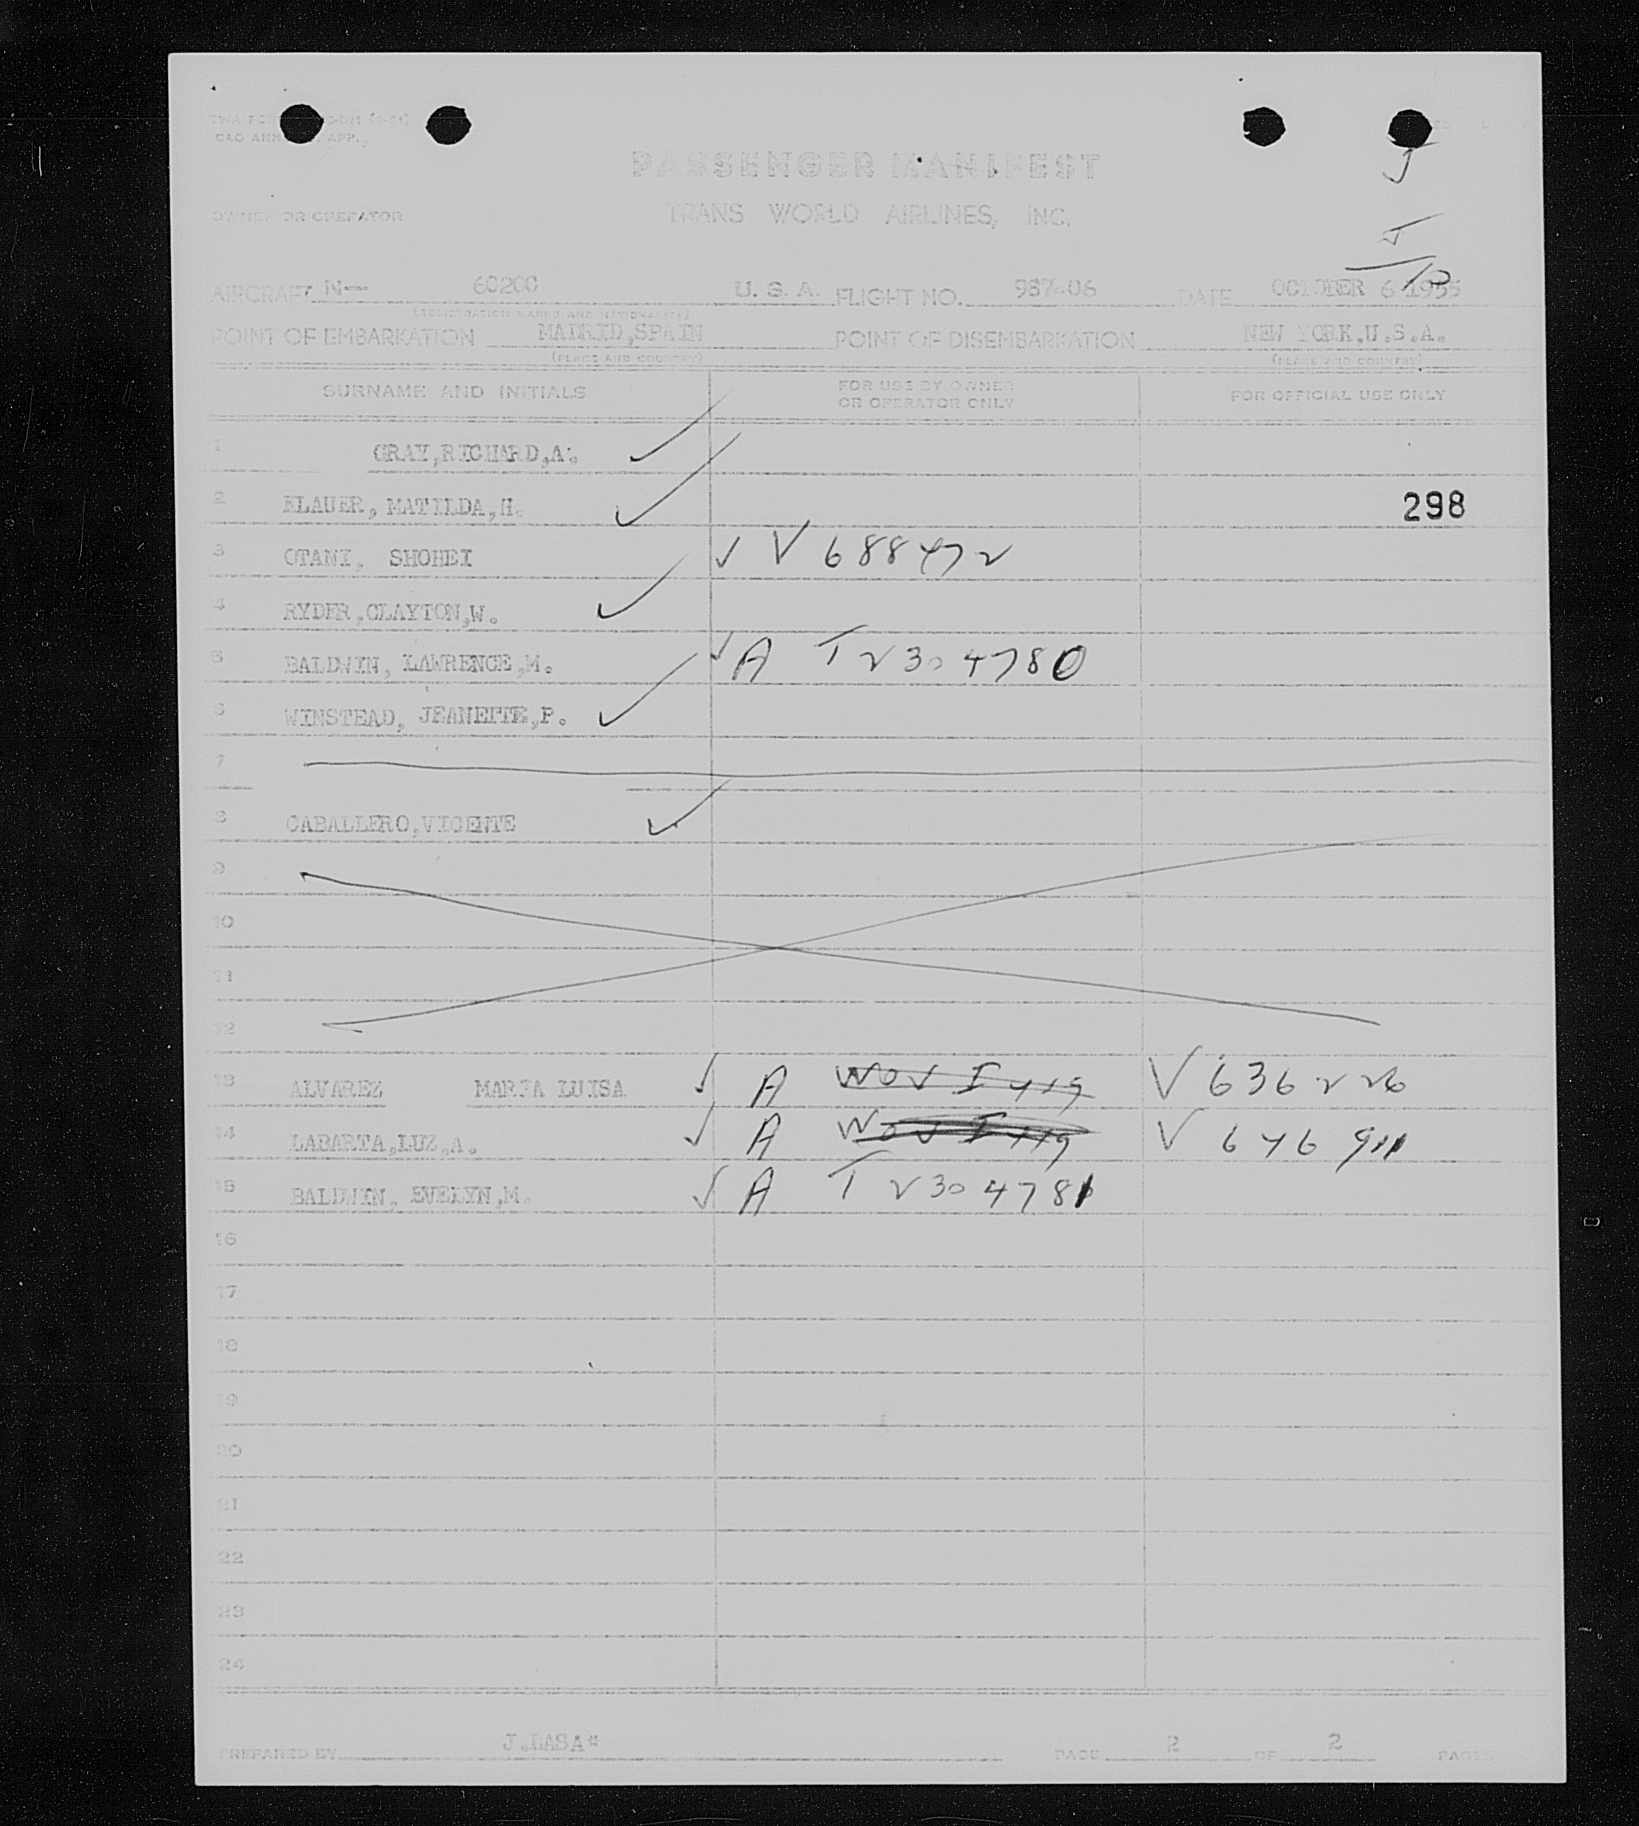 PASSENGER MANIFEST
OWNER OR OPERATOR TRANS WORLD AIRLINES, INC.
AIRCRAFT N— 60200 U. S. A. FLIGHT NO. 937-06 DATE OCTOBER 6 1955
(REGISTRATION MARKS AND NATIONALITY)
POINT OF EMBARKATION MADRID,SPAIN POINT OF DISEMBARKATION NEW YORK,U.S.A.
(PLACE AND COUNTRY) (PLACE AND COUNTRY)
SURNAME AND INITIALS FOR USE BY OWNER OR OPERATOR ONLY FOR OFFICIAL USE ONLY
1 GRAY,RICHARD,A.
2 KLAUER, MATILDA,H. 298
3 OTANI, SHOHEI V 688472
4 RYDER,CLAYTON,W.
5 BALDWIN, LAWRENCE,M. A T2304780
6 WINSTEAD, JEANETTE,P.
7
8 CABALLERO,VICENTE
9
10
11
12
13 ALVAREZ MARIA LUISA A V 636226
14 LABARTA,LUZ,A. A V 646911
15 BALDWIN, EVELYN,M. A T2304781
16
17
18
19
20
21
22
23
24
PREPARED BY J.LASA* PAGE 2 OF 2 PAGES